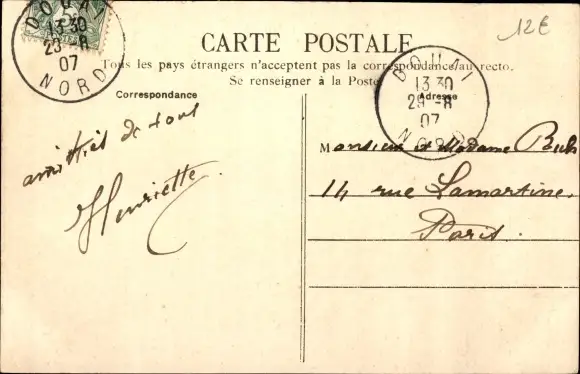 DOUAI
13 30
23 - 8
07
NORD
5
12€
CARTE POSTALE
Tous les pays étrangers n'acceptent pas la correspondance au recto.
Se renseigner à la Poste
Correspondance
Adresse
DOUAI
13 30
29 - 8
07
NORD
amitiés de tous
Henriette
Monsieur et Madame
14 rue Lamartine
Paris.